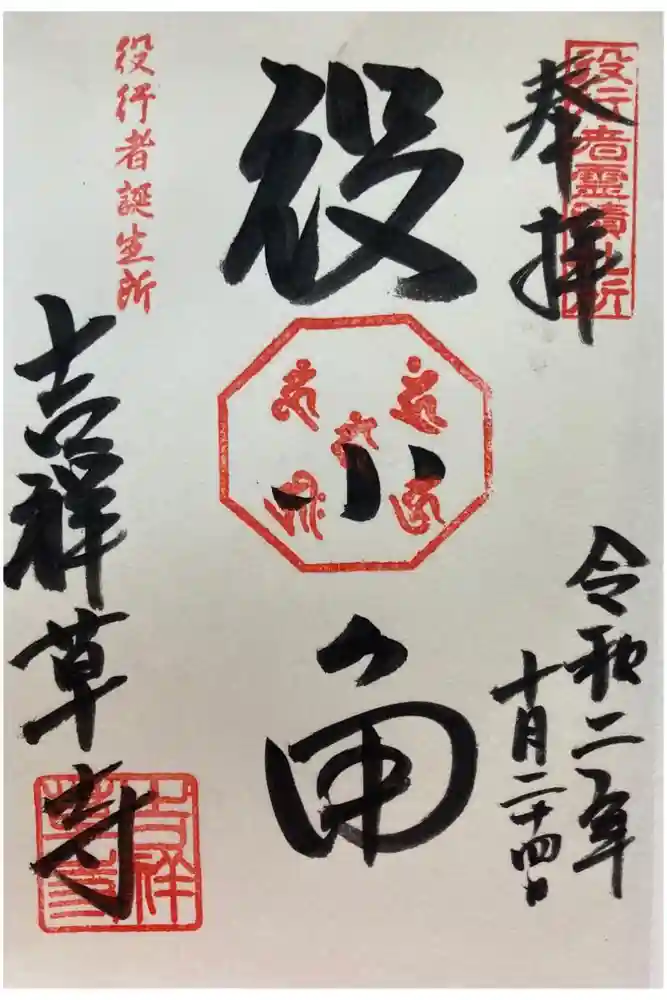 奉拝
役行者霊蹟札所
令和二年
十月二十四日
役
小
角
役行者誕生所
吉祥草寺
吉祥草寺